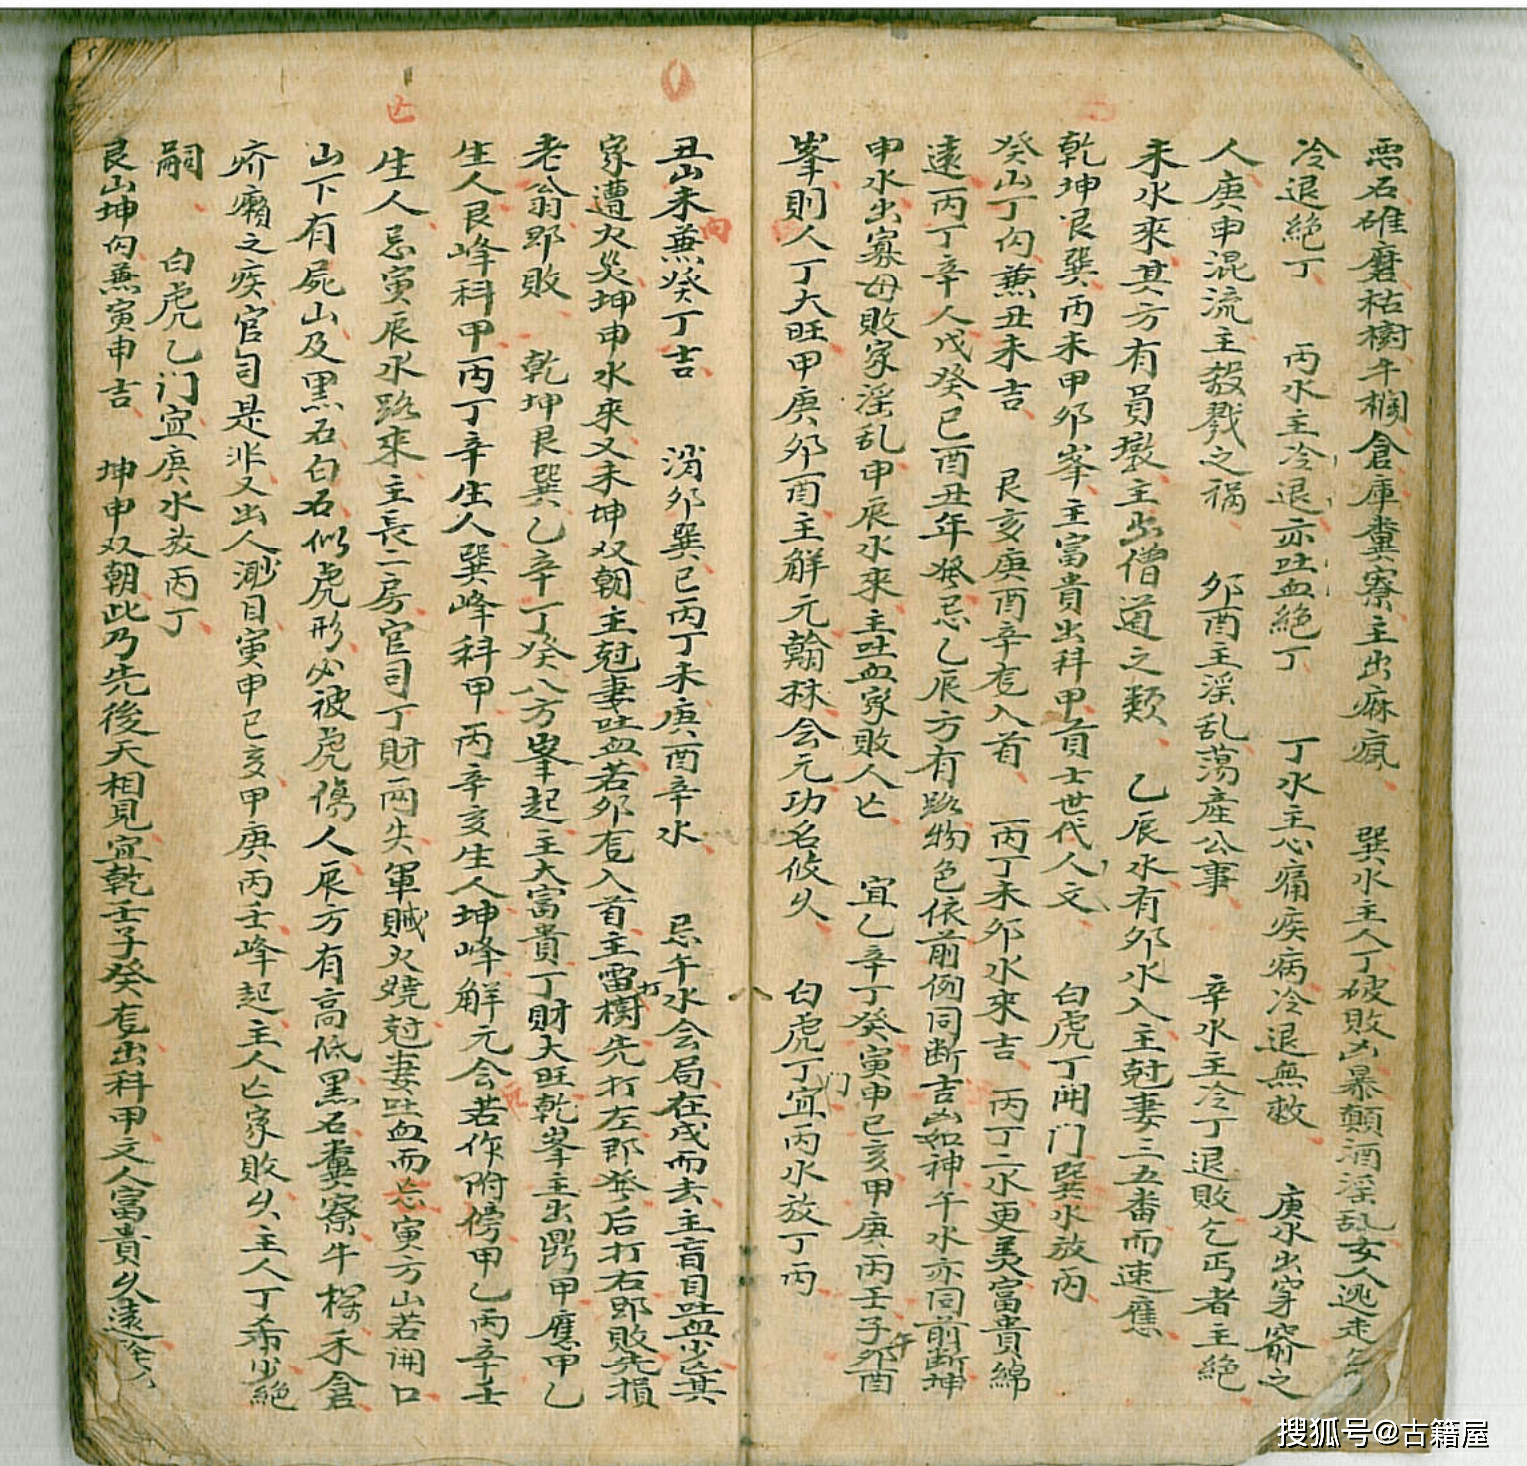 惡石碓磨枯樹牛欄倉庫糞寮主出麻瘋 巽水主人丁破敗凶暴顛酒淫乱女人逃走
冷退絕丁 丙水主冷退亦吐血絕丁 丁水主心痛疾病冷退無救 庚水出穿窬之
人庚申混流主殺戮之禍 夘酉主淫乱蕩產公事 辛水主冷丁退敗乞丐者主絕
未水來其方有員墩主出僧道之類 乙辰水有夘水入主尅妻三五番而速應
乾坤艮巽丙未甲夘峯主富貴出科甲首士世代人文 白虎丁開门巽水放丙
癸山丁向兼丑未吉 艮亥庚酉辛竜入首 丙丁未夘水來吉 丙丁二水更美富貴綿
遠丙丁辛人戊癸巳酉丑年發忌乙辰方有路物色依前例同斷吉凶如神午水亦同前斷坤
申水出寡母敗家淫乱申辰水來主吐血家敗人亡 宜乙辛丁癸寅申巳亥甲庚丙壬子午夘酉
峯則人丁大旺甲庚夘酉主解元翰林会元功名攸久 白虎丁门宜丙水放丁丙
丑山未向兼癸丁吉 消夘巽巳丙丁未庚酉辛水 忌午水会局在戌而去主盲目吐血少亡其
家遭火災坤申水來又未坤双朝主尅妻吐血若夘竜入首主雷打樹先打左郡發后打右郡敗先損
老翁郡敗 乾坤艮巽乙辛丁癸八方峯起主大富貴丁財大旺乾峯主出鼎甲應甲乙
生人艮峰科甲丙丁辛生人巽峰科甲丙辛亥生人坤峰解元会元若作附傍甲乙丙辛壬
生人忌寅辰水路來主長二房官司丁財兩失軍賊火燒尅妻吐血而亡寅方山若開口
山下有屍山及黑石白石似虎形必被虎傷人辰方有高低黑石糞寮牛欄禾倉
疥癩之疾官司是非又出人渺目寅申巳亥甲庚丙壬峰起主人亡家敗久主人丁希少絕
嗣 白虎乙门宜庚水放丙丁
艮山坤向兼寅申吉 坤申双朝此乃先後天相見宜乾壬子癸竜出科甲文人富貴久遠
搜狐号@古籍屋